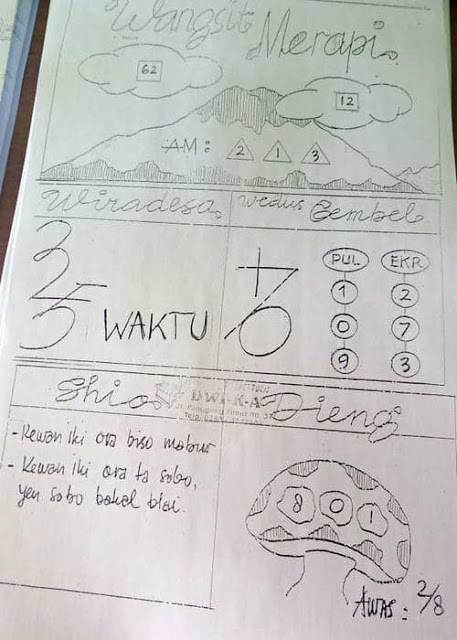 Wangsit Merapi
62
12
AM:
2 1 3
Wiradesa
Wedus Gembel
3
2
5 WAKTU
7
8
PUL EKR
1 2
0 7
9 3
Shio
Dieng
DWI-K-A
- Kewan iki ora biso mabur
- Kewan iki ora ta sobo,
yen sobo bakal bisi.
8 0 1
AWAS: 2/8